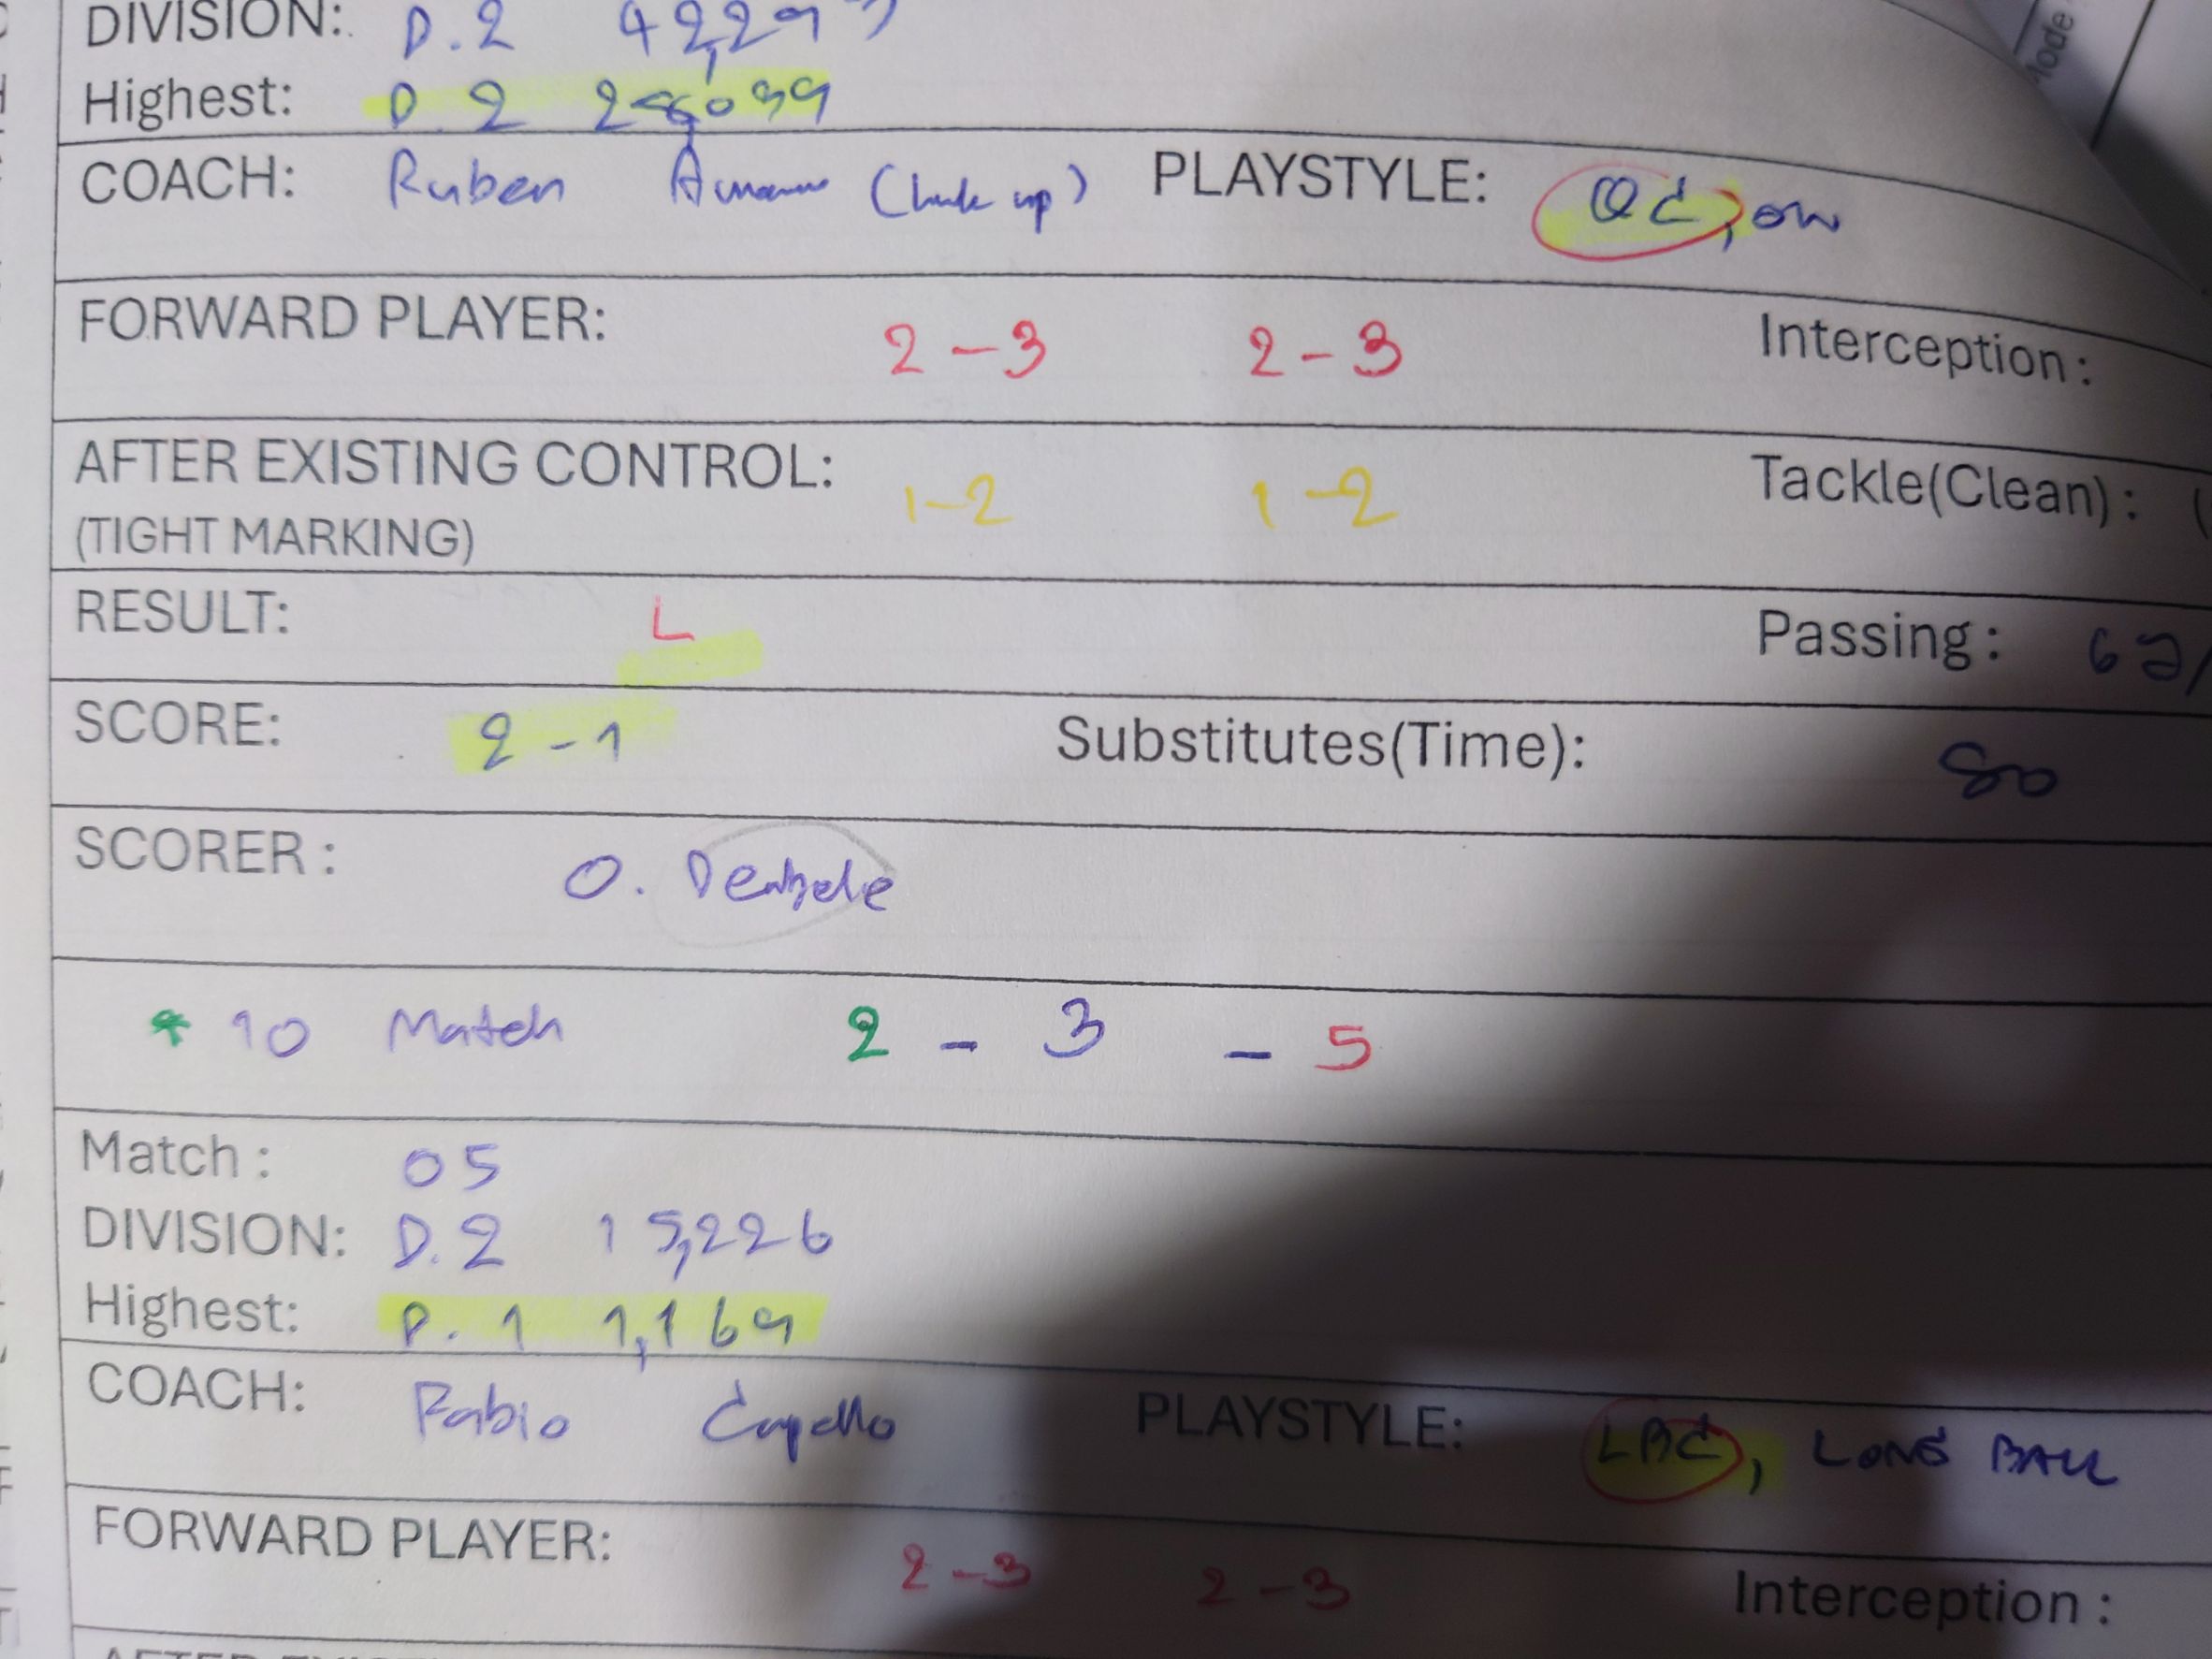 DIVISION: D.2 42,29
Highest: D.2
COACH: Ruben (link up) PLAYSTYLE: QC, OW
FORWARD PLAYER: 2-3 2-3 Interception:
AFTER EXISTING CONTROL: 1-2 1-2 Tackle(Clean):
(TIGHT MARKING)
RESULT: L Passing: 62/
SCORE: 2-1 Substitutes(Time):
SCORER: O. Dembele
* 10 Match 2 - 3 - 5
Match: 05
DIVISION: D.2 15,226
Highest: D.1 1,169
COACH: Fabio Capello PLAYSTYLE: LBC, LONG BALL
FORWARD PLAYER: 2-3 2-3 Interception: